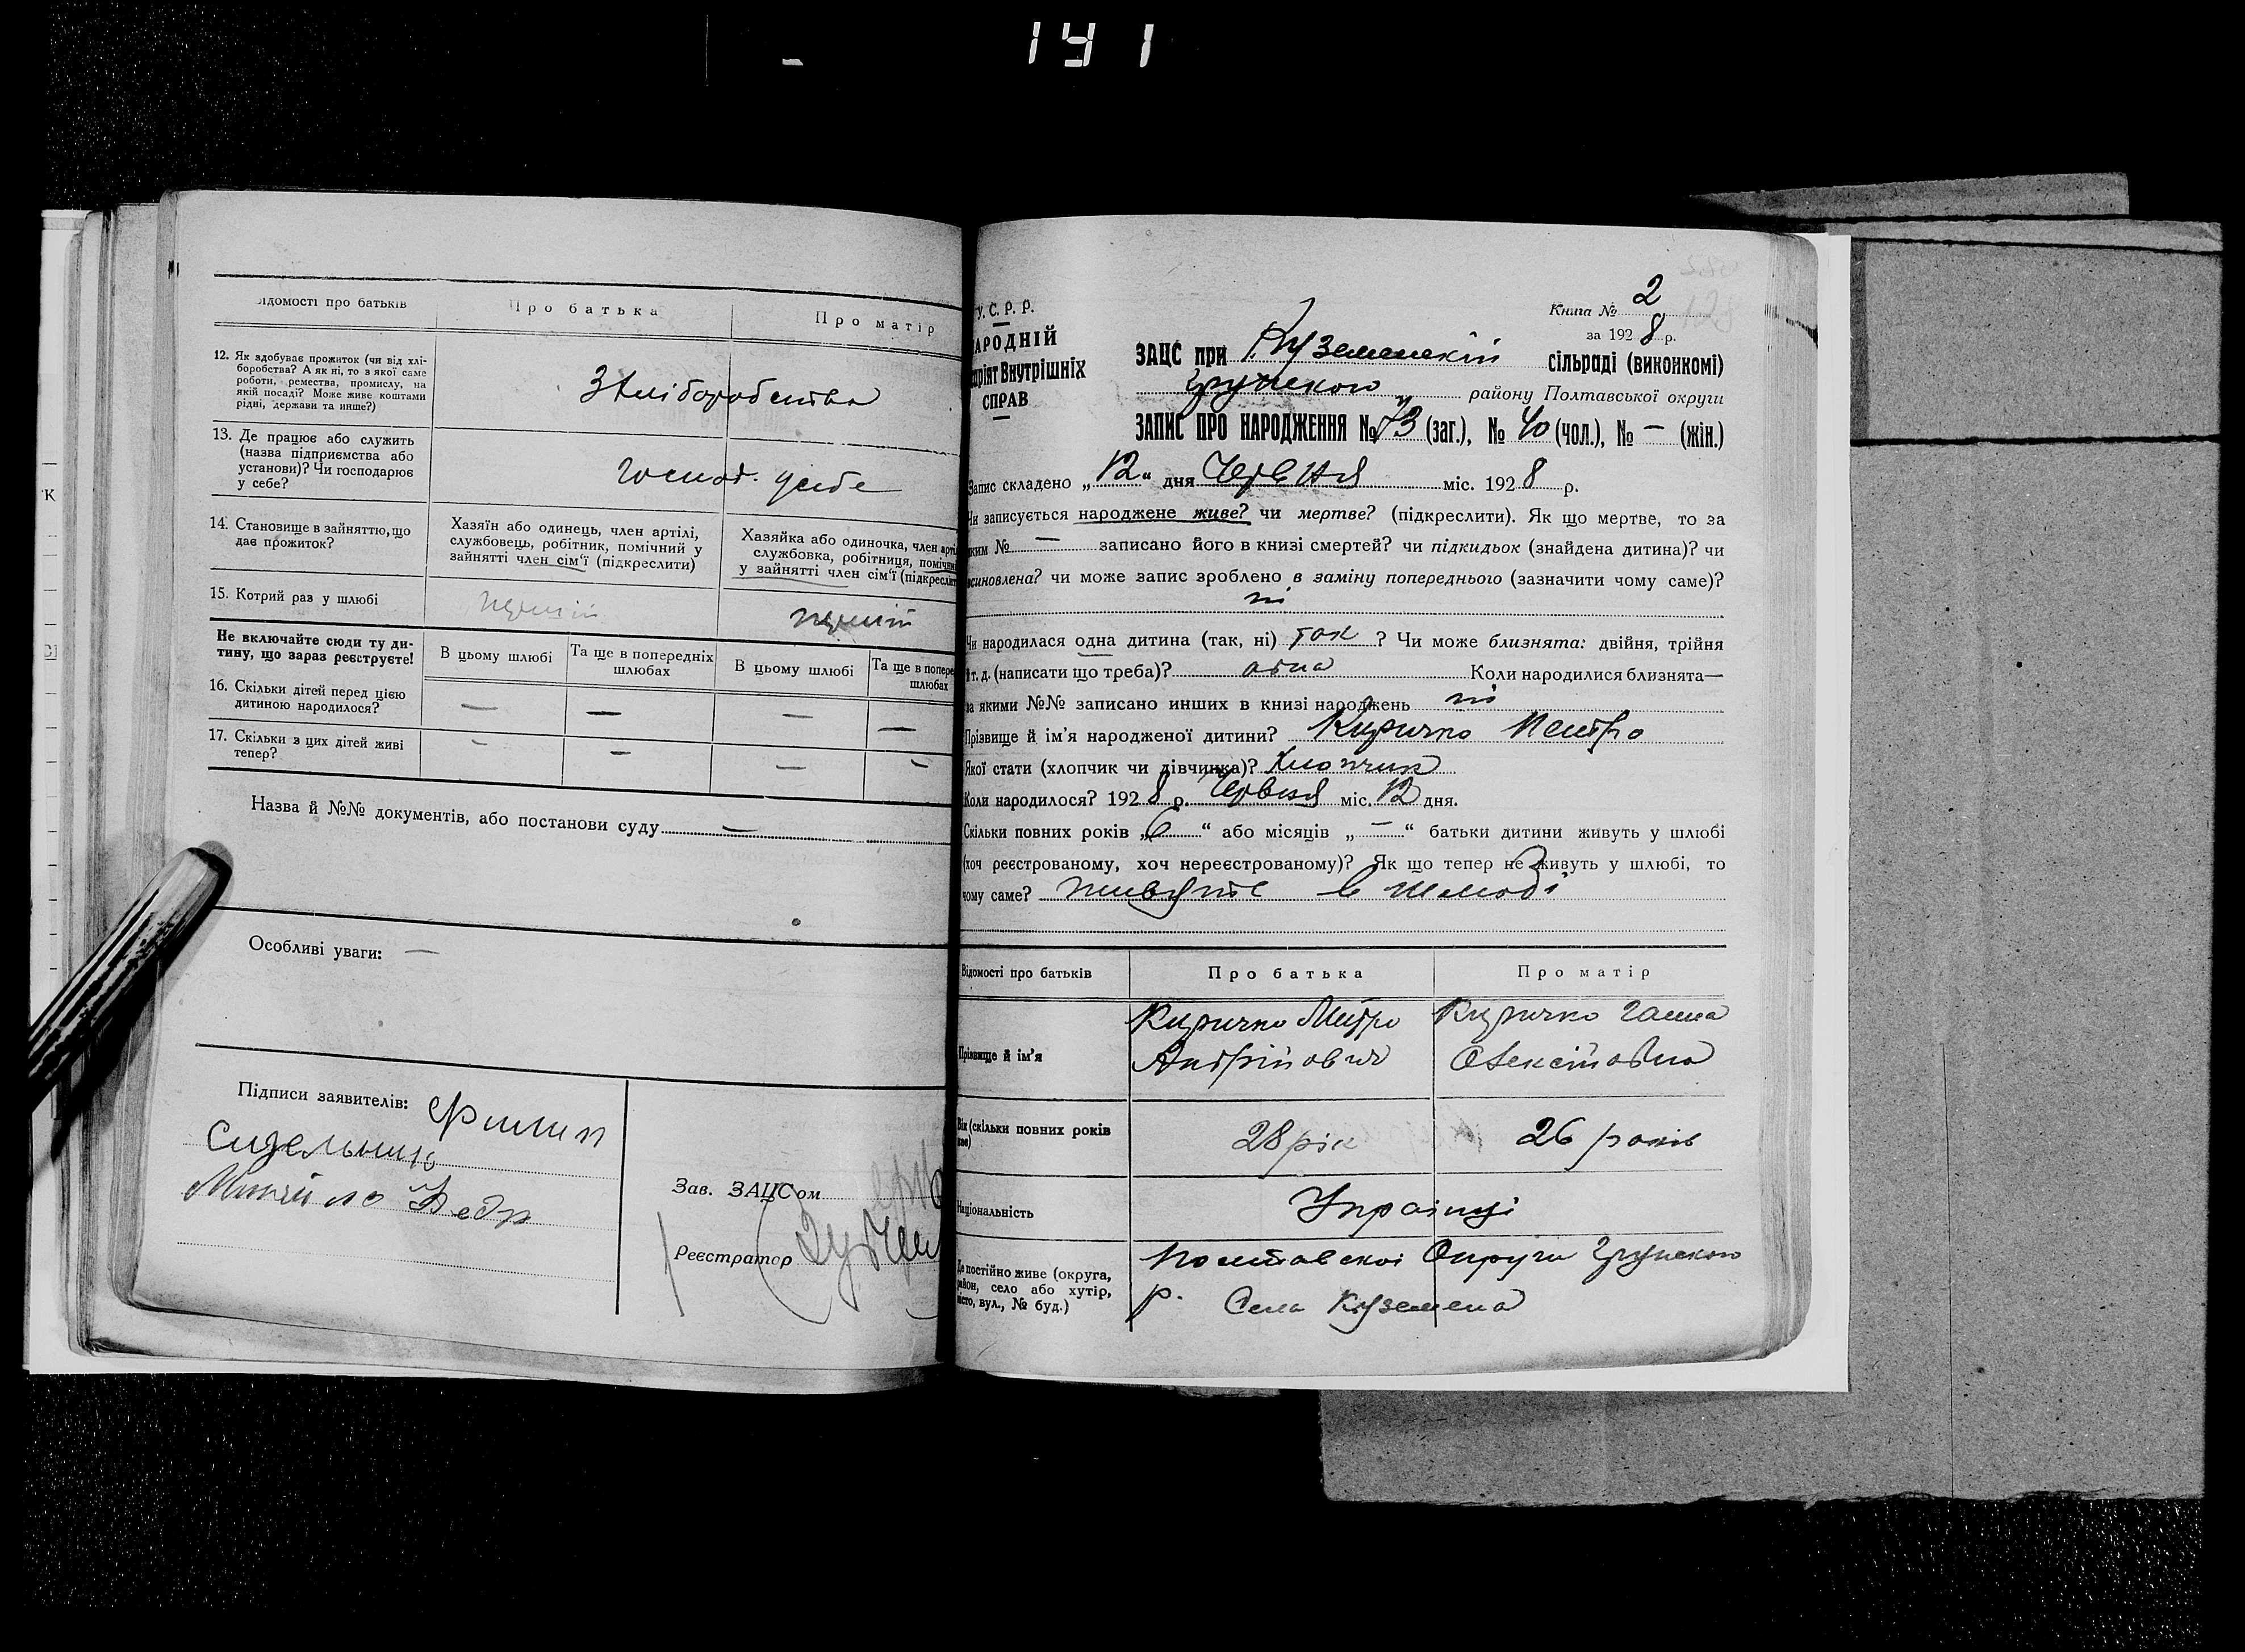 141
Відомості про батьків
Про батька
Про матір
12. Як здобуває прожиток (чи від хлі-
боробства? А як ні, то з якої саме
роботи, ремества, промислу, на
якій посаді? Може живе коштами
рідні, держави та инше?)
З хліборобства
13. Де працює або служить
(назва підприємства або
установи)? Чи господарює
у себе?
господ. у себе
14. Становище в зайняттю, що
дає прожиток?
Хазяїн або одинець, член артілі,
службовець, робітник, помічний у
зайнятті член сім'ї (підкреслити)
Хазяйка або одиночка, член арті
службовка, робітниця, помічни
у зайнятті член сім'ї (підкреслит
15. Котрий раз у шлюбі
перший
перший
Не включайте сюди ту ди-
тину, що зараз реєструєте!
В цьому шлюбі
Та ще в попередніх
шлюбах
В цьому шлюбі
Та ще в попере
шлюбах
16. Скільки дітей перед цією
дитиною народилося?
— — — —
17. Скільки з цих дітей живі
тепер?
— — — —
Назва й №№ документів, або постанови суду —
Особливі уваги: —
Підписи заявителів: Филип
Сидельник
Федр
Зав. ЗАЦСом
Реєстратор
У.С.Р.Р.
АРОДНІЙ
ріят Внутрішніх
СПРАВ
Книга № 2
за 1928 р.
ЗАЦС при Куземенскій сільраді (виконкомі)
Грунського району Полтавської округи
ЗАПИС ПРО НАРОДЖЕННЯ № 73 (заг.), № 40 (чол.), № — (жін.)
Запис складено „12" дня Червня міс. 1928 р.
Чи записується народжене живе? чи мертве? (підкреслити). Як що мертве, то за
яким № — записано його в книзі смертей? чи підкидьок (знайдена дитина)? чи
всиновлена? чи може запис зроблено в заміну попереднього (зазначити чому саме)?
ні
Чи народилася одна дитина (так, ні) так ? Чи може близнята: двійня, трійня
і т. д. (написати що треба)? одна Коли народилися близнята—
за якими №№ записано инших в книзі народжень ні
Прізвище й ім'я народженої дитини? Киричко Петро
Якої стати (хлопчик чи дівчинка)? Хлопчик
Коли народилося? 1928 р. Червня міс. 12 дня.
Скільки повних років „6" або місяців „—" батьки дитини живуть у шлюбі
(хоч реєстрованому, хоч нереєстрованому)? Як що тепер не живуть у шлюбі, то
чому саме? живуть в шлюбі
Відомості про батьків
Про батька
Про матір
Прізвище й ім'я
Киричко Митро
Андрійович
Киричко Ганна
Олексіївна
Вік (скільки повних років
має)
28 рік
26 років
Національність
Українці
Де постійно живе (округа,
район, село або хутір,
місто, вул., № буд.)
Полтавскої Округи Грунского
р. Села Куземена